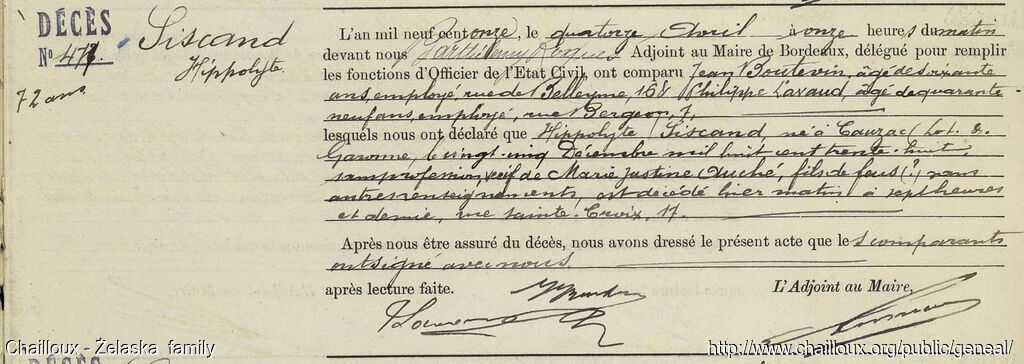 DÉCÈS
Nº 473
Siscand
Hippolyte
72 ans
L'an mil neuf cent onze, le quatorze Avril à onze heures du matin
devant nous Barthélemy Adjoint au Maire de Bordeaux, délégué pour remplir
les fonctions d'Officier de l'Etat Civil, ont comparu Jean Boutevin, âgé de soixante
ans, employé, rue de Belleyme, 168 Philippe Lavaud, âgé de quarante-
neuf ans, employé, rue Bergeon, 7.
lesquels nous ont déclaré que Hippolyte Siscand, né à Cauzac (Lot &
Garonne, le vingt-cinq Décembre mil huit cent trente-huit,
sans profession, veuf de Marie Justine Auché, fils de feus (?) sans
autres renseignements, est décédé hier matin à sept heures
et demie, rue Sainte-Croix, 17.
Après nous être assuré du décès, nous avons dressé le présent acte que les comparants
ont signé avec nous
après lecture faite. L'Adjoint au Maire,
Chailloux - Żelaska family
http://www.chailloux.org/public/geneal/